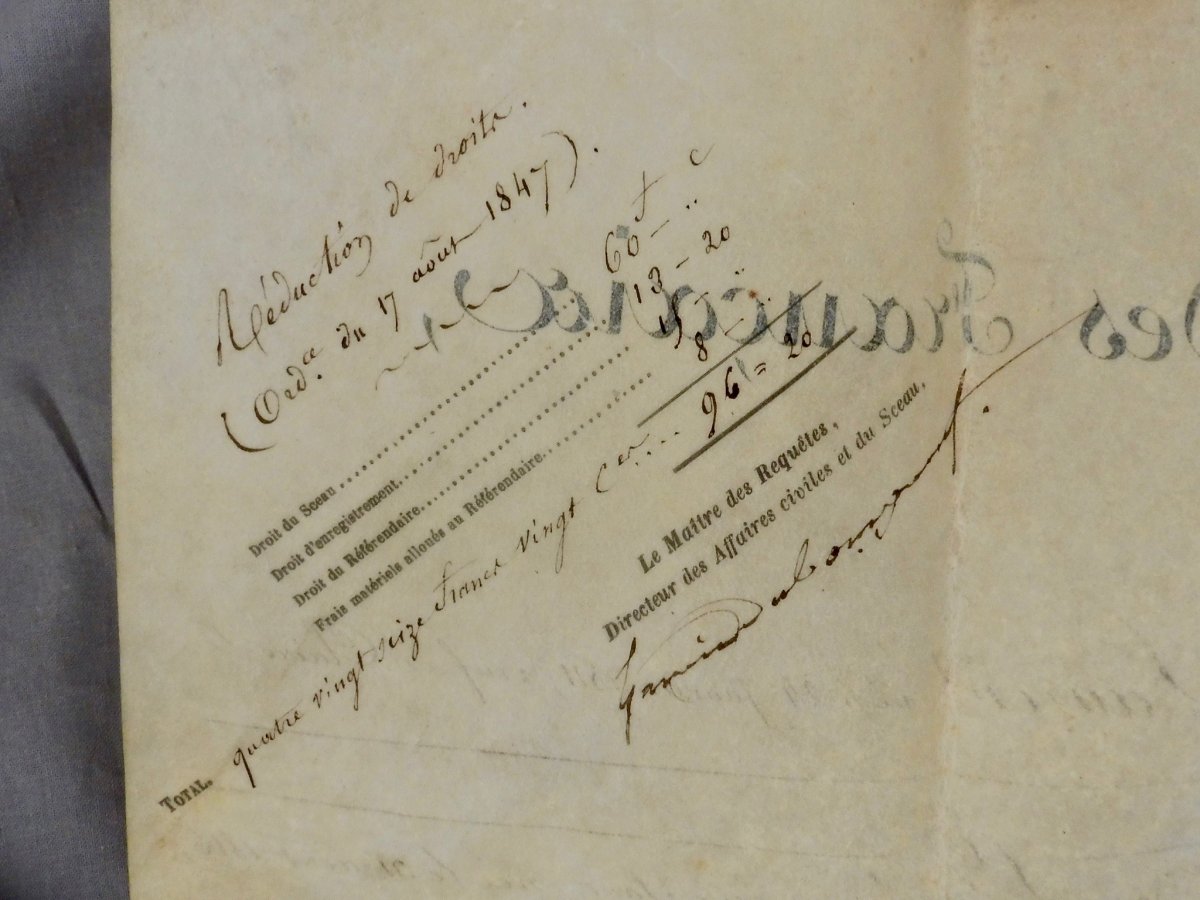 Réduction de droits.
(Ord.ce du 7 août 1847).
f c
Droit du Sceau .......... 60 – "
Droit d'enregistrement .......... 13 – 20
Droit du Référendaire .......... 15 – "
Frais matériels alloués au Référendaire .......... 8 – "
TOTAL. quatre vingt seize francs vingt ces ... 96 = 20
Le Maître des Requêtes,
Directeur des Affaires civiles et du Sceau,
des Français